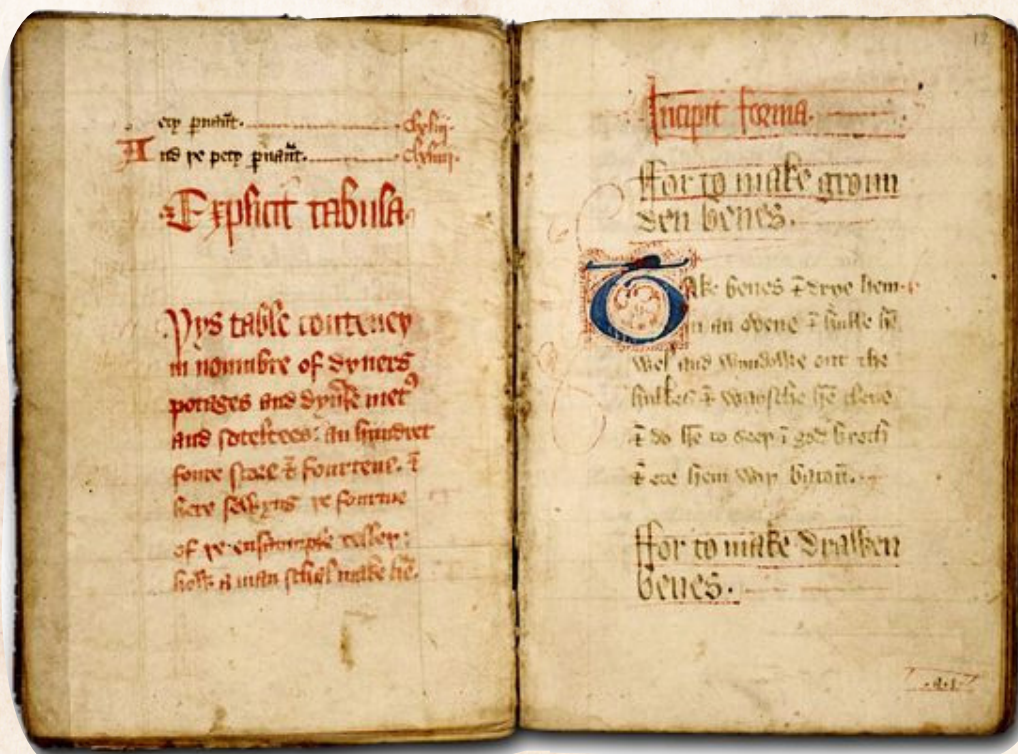 And þe pety
Explicit tabula
Þys table conteneþ
in noumbre of dyuers
potages and dyu̅se metꝯ
and soteltees: an hundret
foure score ⁊ fourtene. ⁊
here sewyng þe fourme
of þe ensaumple telleþ:
how a man schal make hē.
12
Incipit forma.
ffor to make groun
den benes.
Take benes ⁊ drye hem
in an ovene ⁊ hulle hē
wel and wyndowe out the
hulkes ⁊ waysche hē clene
⁊ do hē to seeþ ī gode broth
⁊ ete hem wiþ bacon.
ffor to make drawen
benes.